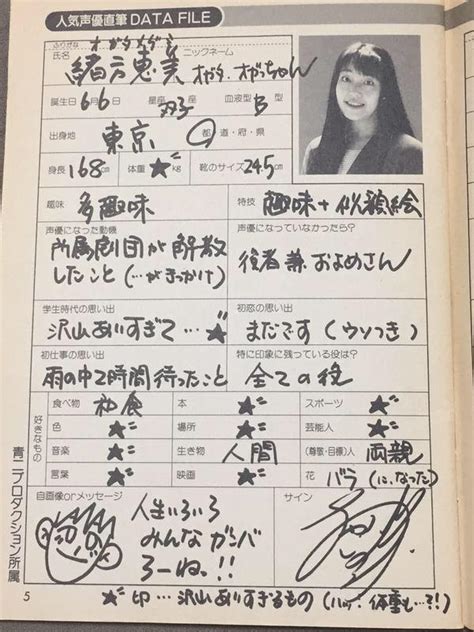 人気声優直筆 DATA FILE
ふりがな オガタ メグミ
氏名 緒方恵美
ニックネーム オガタ、オガっちゃん
誕生日 6月6日 星座 双子座 血液型 B型
出身地 東京 都・道・府・県
身長 168cm 体重 ★kg 靴のサイズ 24.5cm
趣味 多趣味
特技 趣味+似顔絵
声優になった動機
所属劇団が解散
したこと(…がきっかけ)
声優になっていなかったら?
役者兼およめさん
学生時代の思い出
沢山ありすぎて…★
初恋の思い出
まだです(ウソつき)
初仕事の思い出
雨の中で時間待ったこと
特に印象に残っている役は?
全ての役
好きなもの
食べ物 和食 本 ★ スポーツ ★
色 ★ 場所 ★ 芸能人 ★
音楽 ★ 生き物 人間 (尊敬・目標)人 両親
言葉 ★ 映画 ★ 花 バラ(に、なった)
自画像orメッセージ
人生いろいろ
みんなガンバ
ろーねっ!!
サイン
青二プロダクション所属
5
★印…沢山ありすぎるもの(ハッ!体重も…?!)